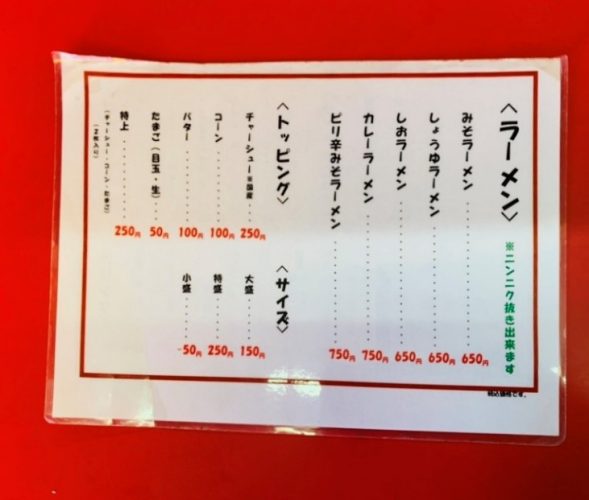 〈ラーメン〉 ※ニンニク抜き出来ます
みそラーメン ・・・・・・・・・・ 650円
しょうゆラーメン ・・・・・・・・ 650円
しおラーメン ・・・・・・・・・・ 650円
カレーラーメン ・・・・・・・・・ 750円
ピリ辛みそラーメン ・・・・・・・ 750円
〈トッピング〉
チャーシュー※国産 ・・・ 250円
コーン ・・・・・・・・ 100円
バター ・・・・・・・・ 100円
たまご(目玉・生) ・・・ 50円
特上 ・・・・・・・・・ 250円
(チャーシュー・コーン・たまご)
(2枚入り)
〈サイズ〉
大盛 ・・・・・ 150円
特盛 ・・・・・ 250円
小盛 ・・・・・ -50円
税込価格です。